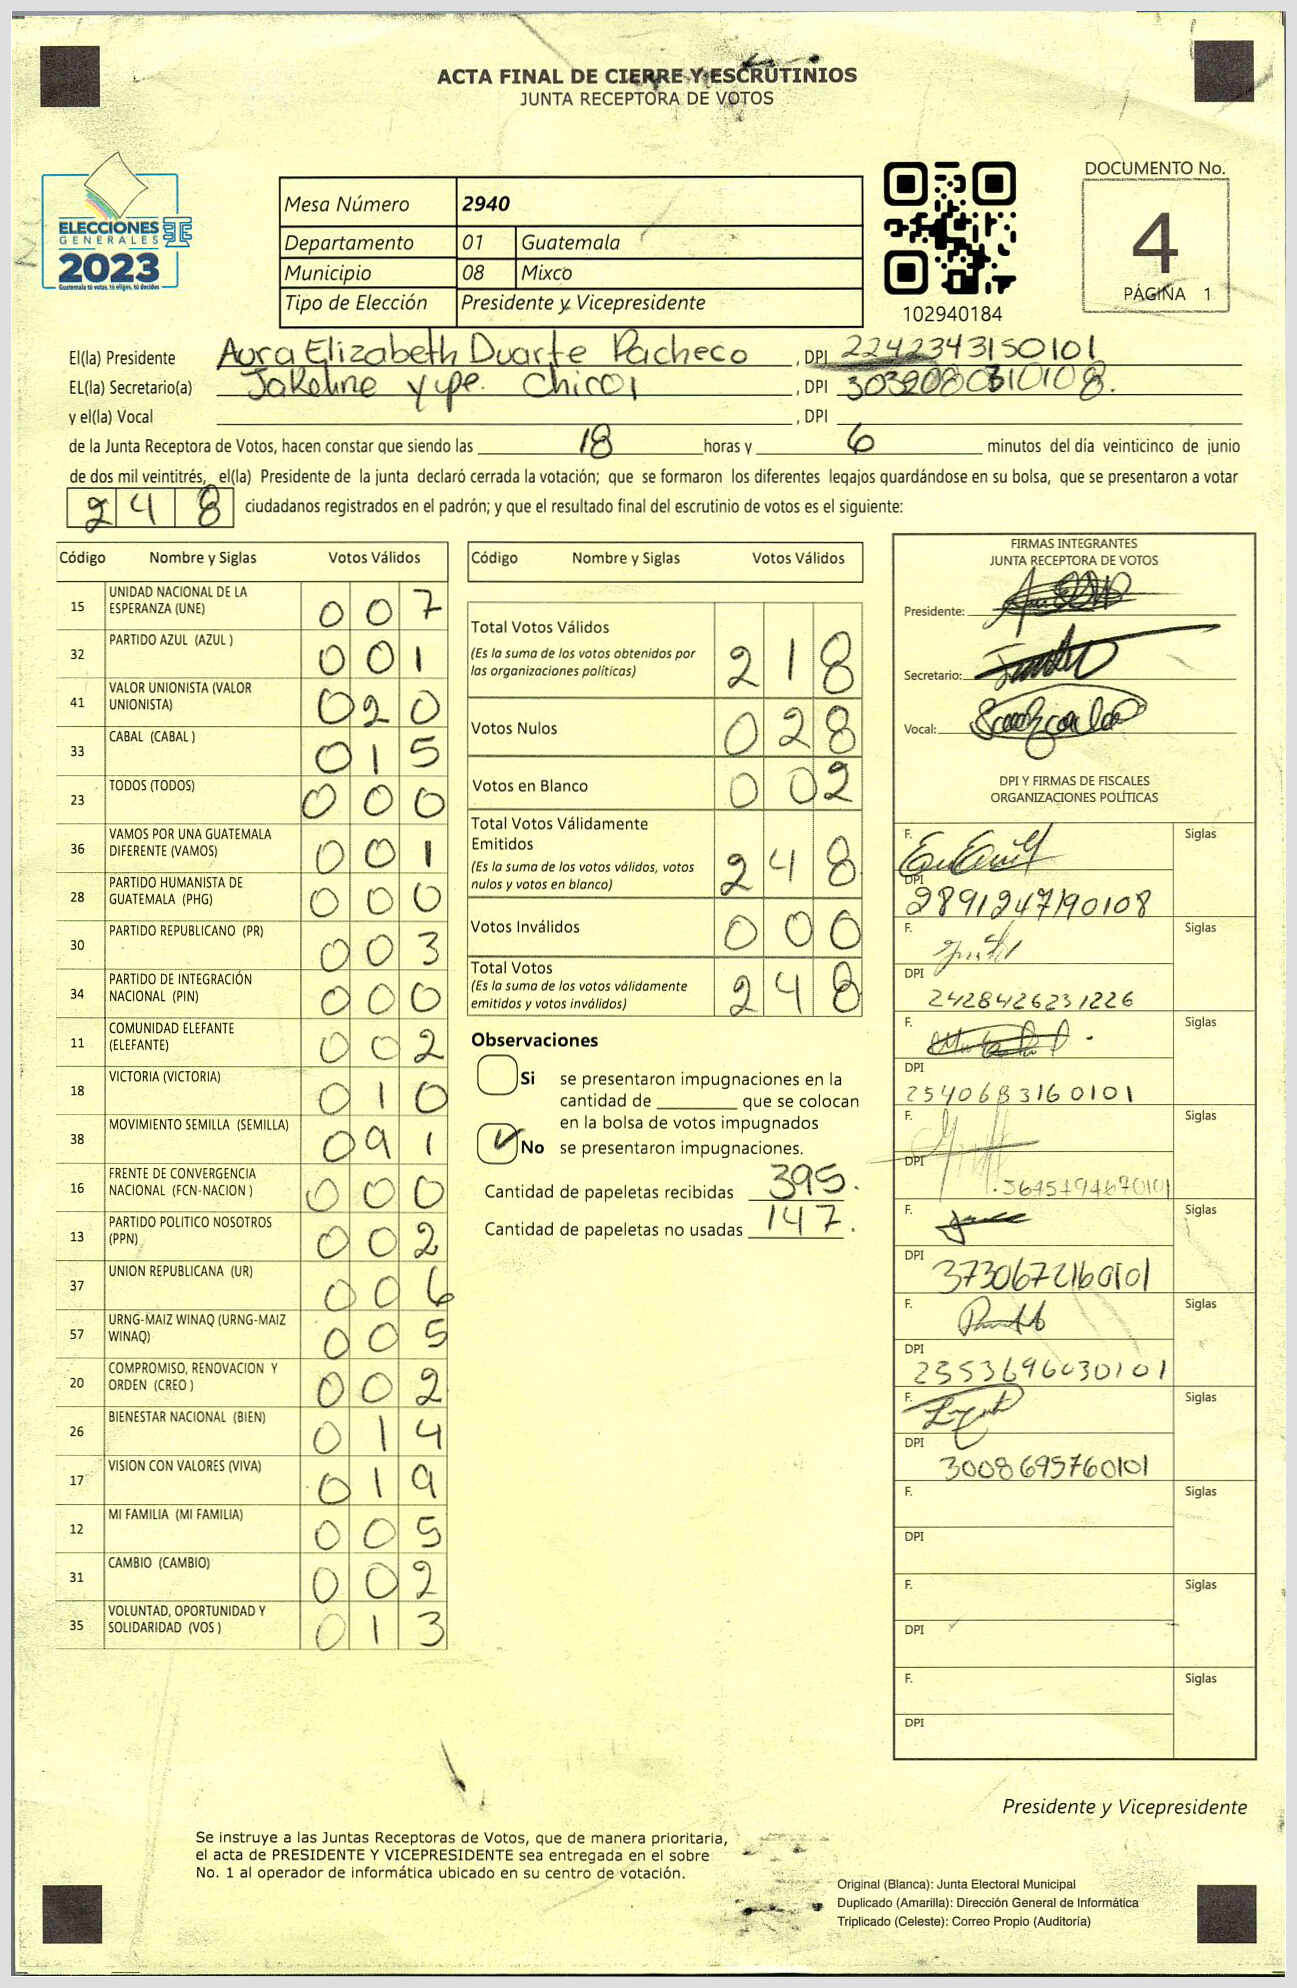 ACTA FINAL DE CIERRE Y ESCRUTINIOS
JUNTA RECEPTORA DE VOTOS
ELECCIONES
GENERALES
2023
Guatemala tú votas, tú eliges, tú decides
Mesa Número 2940
Departamento 01 Guatemala
Municipio 08 Mixco
Tipo de Elección Presidente y Vicepresidente
102940184
DOCUMENTO No.
4
PÁGINA 1
El(la) Presidente Aura Elizabeth Duarte Pacheco, DPI 2242343150101
EL(la) Secretario(a) Jakeline, DPI
y el(la) Vocal , DPI
de la Junta Receptora de Votos, hacen constar que siendo las 18 horas y 6 minutos del día veinticinco de junio
de dos mil veintitrés, el(la) Presidente de la junta declaró cerrada la votación; que se formaron los diferentes legajos guardándose en su bolsa, que se presentaron a votar
248 ciudadanos registrados en el padrón; y que el resultado final del escrutinio de votos es el siguiente:
Código Nombre y Siglas Votos Válidos
15 UNIDAD NACIONAL DE LA ESPERANZA (UNE) 007
32 PARTIDO AZUL (AZUL ) 001
41 VALOR UNIONISTA (VALOR UNIONISTA) 020
33 CABAL (CABAL ) 015
23 TODOS (TODOS) 000
36 VAMOS POR UNA GUATEMALA DIFERENTE (VAMOS) 001
28 PARTIDO HUMANISTA DE GUATEMALA (PHG) 000
30 PARTIDO REPUBLICANO (PR) 003
34 PARTIDO DE INTEGRACIÓN NACIONAL (PIN) 000
11 COMUNIDAD ELEFANTE (ELEFANTE) 002
18 VICTORIA (VICTORIA) 010
38 MOVIMIENTO SEMILLA (SEMILLA) 091
16 FRENTE DE CONVERGENCIA NACIONAL (FCN-NACION ) 000
13 PARTIDO POLITICO NOSOTROS (PPN) 002
37 UNION REPUBLICANA (UR) 006
57 URNG-MAIZ WINAQ (URNG-MAIZ WINAQ) 005
20 COMPROMISO, RENOVACION Y ORDEN (CREO ) 002
26 BIENESTAR NACIONAL (BIEN) 014
17 VISION CON VALORES (VIVA) 019
12 MI FAMILIA (MI FAMILIA) 005
31 CAMBIO (CAMBIO) 002
35 VOLUNTAD, OPORTUNIDAD Y SOLIDARIDAD (VOS ) 013
Código Nombre y Siglas Votos Válidos
Total Votos Válidos 218
(Es la suma de los votos obtenidos por
las organizaciones políticas)
Votos Nulos 028
Votos en Blanco 002
Total Votos Válidamente
Emitidos 248
(Es la suma de los votos válidos, votos
nulos y votos en blanco)
Votos Inválidos 000
Total Votos 248
(Es la suma de los votos válidamente
emitidos y votos inválidos)
Observaciones
Si se presentaron impugnaciones en la
cantidad de ________ que se colocan
en la bolsa de votos impugnados
No se presentaron impugnaciones.
Cantidad de papeletas recibidas 395.
Cantidad de papeletas no usadas 147.
FIRMAS INTEGRANTES
JUNTA RECEPTORA DE VOTOS
Presidente:
Secretario:
Vocal:
DPI Y FIRMAS DE FISCALES
ORGANIZACIONES POLÍTICAS
F. Siglas
DPI
2891247190108
F. Siglas
DPI
2428426231226
F. Siglas
DPI
2540683160101
F. Siglas
DPI
F. Siglas
DPI
3730672160101
F. Siglas
DPI
2353696030101
F. Siglas
DPI
3008695760101
F. Siglas
DPI
F. Siglas
DPI
F. Siglas
DPI
Presidente y Vicepresidente
Se instruye a las Juntas Receptoras de Votos, que de manera prioritaria,
el acta de PRESIDENTE Y VICEPRESIDENTE sea entregada en el sobre
No. 1 al operador de informática ubicado en su centro de votación.
Original (Blanca): Junta Electoral Municipal
Duplicado (Amarilla): Dirección General de Informática
Triplicado (Celeste): Correo Propio (Auditoría)